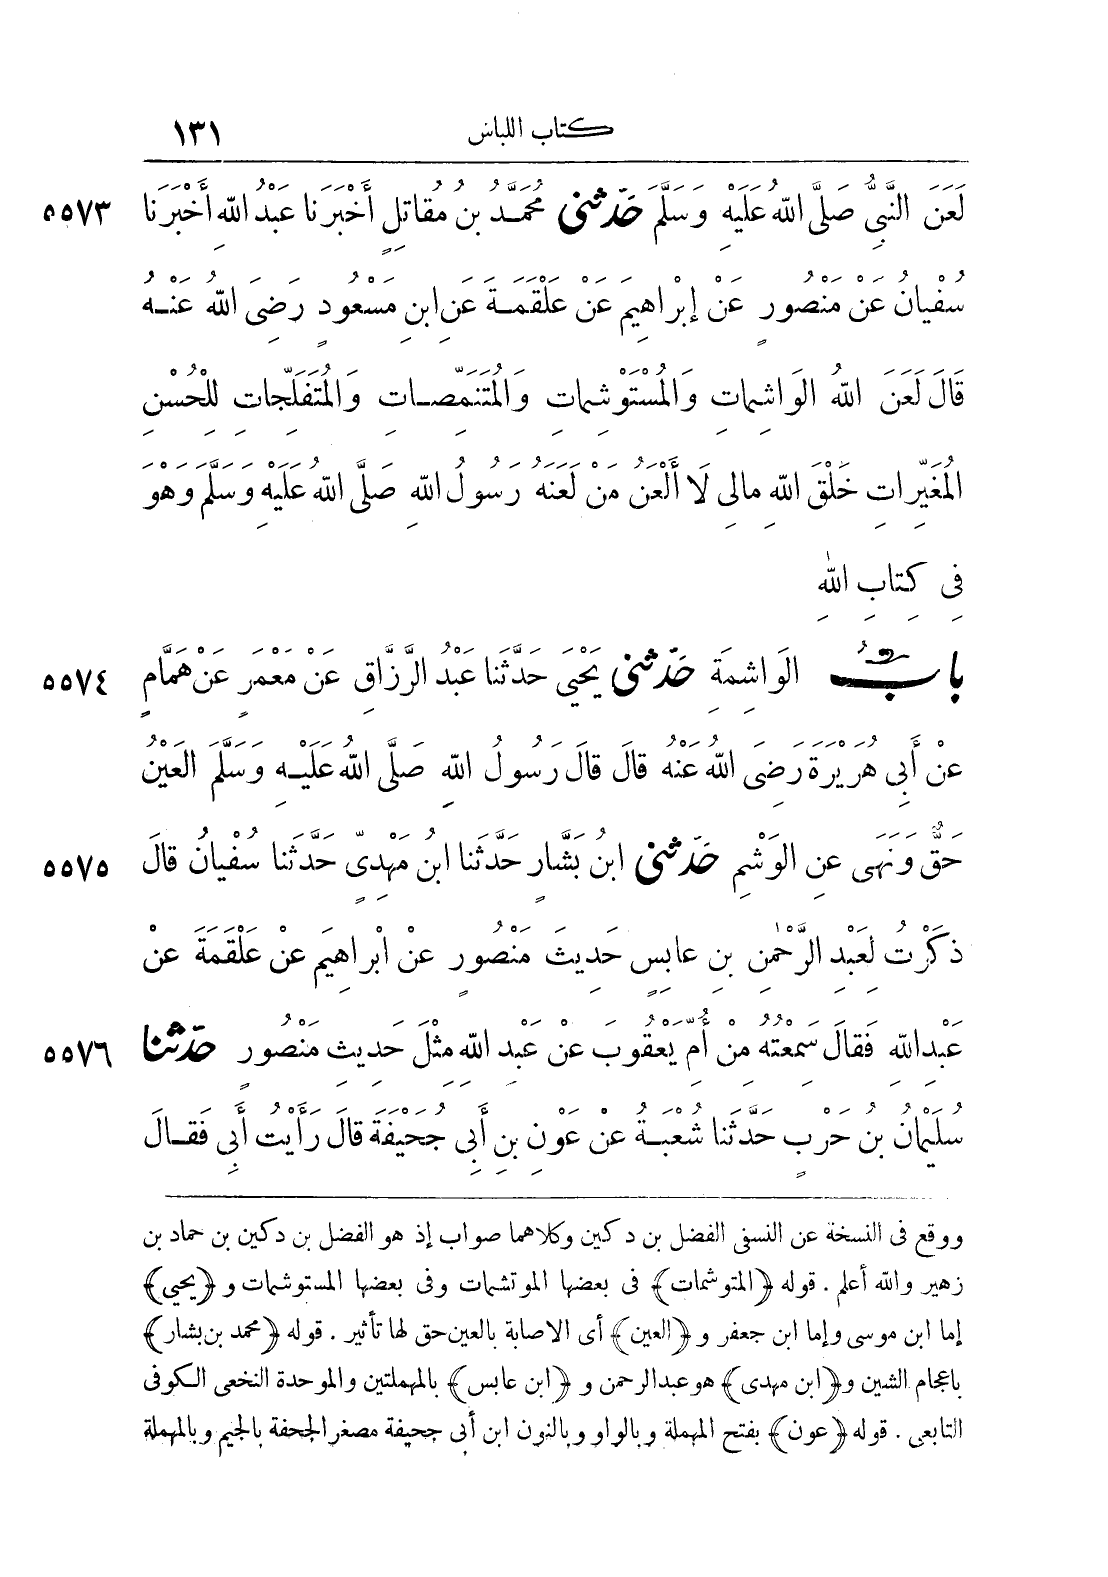 كتاب اللباس ١٣١
لَعَنَ النَّبِيُّ صَلَّى اللهُ عَلَيْهِ وَسَلَّمَ حَدَّثَنِى مُحَمَّدُ بْنُ مُقَاتِلٍ أَخْبَرَنَا عَبْدُ اللهِ أَخْبَرَنَا ٥٥٧٣
سُفْيَانُ عَنْ مَنْصُورٍ عَنْ إِبْرَاهِيمَ عَنْ عَلْقَمَةَ عَنِ ابنِ مَسْعُودٍ رَضِىَ اللهُ عَنْهُ
قَالَ لَعَنَ اللهُ الوَاشِمَاتِ وَالمُسْتَوْشِمَاتِ وَالمُتَنَمِّصَاتِ وَالمُتَفَلِّجَاتِ لِلْحُسْنِ
المُغَيِّرَاتِ خَلْقَ اللهِ مَالِى لَا أَلْعَنُ مَنْ لَعَنَهُ رَسُولُ اللهِ صَلَّى اللهُ عَلَيْهِ وَسَلَّمَ وَهْوَ
فِى كِتَابِ اللهِ
بابُ الوَاشِمَةِ حَدَّثَنِى يَحْيَى حَدَّثَنَا عَبْدُ الرَّزَّاقِ عَنْ مَعْمَرٍ عَنْ هَمَّامٍ ٥٥٧٤
عَنْ أَبِى هُرَيْرَةَ رَضِىَ اللهُ عَنْهُ قَالَ قَالَ رَسُولُ اللهِ صَلَّى اللهُ عَلَيْهِ وَسَلَّمَ العَيْنُ
حَقٌّ وَنَهَى عَنِ الوَشْمِ حَدَّثَنِى ابنُ بَشَّارٍ حَدَّثَنَا ابنُ مَهْدِىٍّ حَدَّثَنَا سُفْيَانُ قَالَ ٥٥٧٥
ذَكَرْتُ لِعَبْدِ الرَّحْمٰنِ بنِ عَابِسٍ حَدِيثَ مَنْصُورٍ عَنْ ابْرَاهِيمَ عَنْ عَلْقَمَةَ عَنْ
عَبْدِ اللهِ فَقَالَ سَمِعْتُهُ مِنْ أُمِّ يَعْقُوبَ عَنْ عَبْدِ اللهِ مِثْلَ حَدِيثِ مَنْصُورٍ حَدَّثَنَا ٥٥٧٦
سُلَيْمَانُ بنُ حَرْبٍ حَدَّثَنَا شُعْبَةُ عَنْ عَوْنِ بنِ أَبِى جُحَيْفَةَ قَالَ رَأَيْتُ أَبِى فَقَالَ
ووقع فى النسخة عن النسفى الفضل بن دكين وكلاهما صواب إذ هو الفضل بن دكين بن حماد بن
زهير والله أعلم . قوله ﴿المتوشمات﴾ فى بعضها الموتشمات وفى بعضها المستوشمات و ﴿يحيى﴾
إما ابن موسى وإما ابن جعفر و ﴿العين﴾ أى الاصابة بالعين حق لها تأثير . قوله ﴿محمد بن بشار﴾
باعجام الشين و﴿ابن مهدى﴾ هو عبد الرحمن و ﴿ابن عابس﴾ بالمهملتين والموحدة النخعى الكوفى
التابعى . قوله ﴿عون﴾ بفتح المهملة وبالواو وبالنون ابن أبى جحيفة مصغر الجحفة بالجيم وبالمهملة